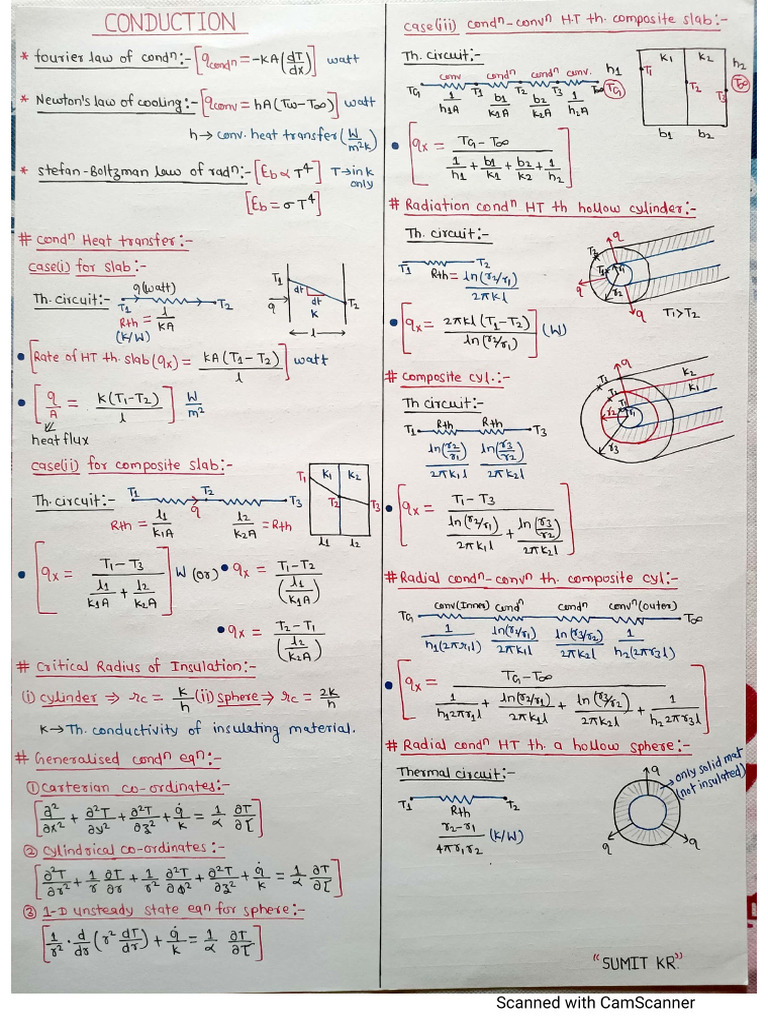 CONDUCTION
* fourier law of condⁿ:- [q_condⁿ = -KA(dT/dx)] watt
* Newton's law of cooling:- [q_conv = hA(Tw-T∞)] watt
h → conv. heat transfer (W/m²K)
* stefan-Boltzman law of radⁿ:- [Eb ∝ T⁴] T→ in k only
[Eb = σT⁴]
# condⁿ Heat transfer:-
case(i) for slab:-
q(watt)
Th. circuit:- T1 T2
Rth = l/KA
(K/W)
T1 dt dt q K T2 l
• [Rate of HT th. slab (qx) = KA(T1-T2)/l] watt
• [q/A = K(T1-T2)/l] W/m²
heat flux
case(ii) for composite slab:-
Th. circuit:- T1 T2 T3
Rth = l1/K1A q l2/K2A = Rth
T1 K1 K2 T2 T3 l1 l2
• [qx = T1-T3 / (l1/K1A + l2/K2A)] W (or) • qx = T1-T2 / (l1/K1A)
• qx = T2-T1 / (l2/K2A)
# Critical Radius of Insulation:-
(i) cylinder ⇒ rc = k/h (ii) sphere ⇒ rc = 2k/h
K → Th. conductivity of insulating material.
# Generalised condⁿ eqⁿ:-
① Carterian co-ordinates:-
[∂²/∂x² + ∂²T/∂y² + ∂²T/∂z² + q̇/k = 1/α ∂T/∂τ]
② cylindrical co-ordinates:-
[∂²T/∂r² + 1/r ∂T/∂r + 1/r² ∂²T/∂φ² + ∂²T/∂z² + q̇/k = 1/α ∂T/∂τ]
③ 1-D unsteady state eqⁿ for sphere:-
[1/r² · d/dr (r² dT/dr) + q̇/k = 1/α ∂T/∂τ]
case(iii) condⁿ-convⁿ H.T th. composite slab:-
Th. circuit:-
conv condⁿ condⁿ conv.
TG T1 T2 T3 T∞
1/h1A b1/K1A b2/K2A 1/h2A
h1 TG T1 K1 K2 T2 T3 h2 T∞ b1 b2
• [qx = TG-T∞ / (1/h1 + b1/K1 + b2/K2 + 1/h2)]
# Radiation condⁿ HT th hollow cylinder:-
Th. circuit:-
T1 T2
Rth = ln(r2/r1)/2πKl
q T2 T1 r1 r2 q q T1>T2
• [qx = 2πKl(T1-T2)/ln(r2/r1)] (W)
# composite cyl.:-
Th circuit:-
T1 Rth Rth T3
ln(r2/r1)/2πK1l ln(r3/r2)/2πK2l
q T3 T2 T1 r1 r2 r3 K2 K1
• [qx = T1-T3 / (ln(r2/r1)/2πK1l + ln(r3/r2)/2πK2l)]
# Radial condⁿ-convⁿ th. composite cyl:-
conv(Inner) Condⁿ condⁿ convⁿ(outer)
TG T∞
1/h1(2πr1l) ln(r2/r1)/2πK1l ln(r3/r2)/2πK2l 1/h2(2πr3l)
• [qx = TG-T∞ / (1/h12πr1l + ln(r2/r1)/2πK1l + ln(r3/r2)/2πK2l + 1/h22πr3l)]
# Radial condⁿ HT th. a hollow sphere:-
Thermal circuit:-
T1 T2
Rth
r2-r1/4πr1r2 (K/W)
q only solid mat (not insulated)
q q
"SUMIT KR."
Scanned with CamScanner